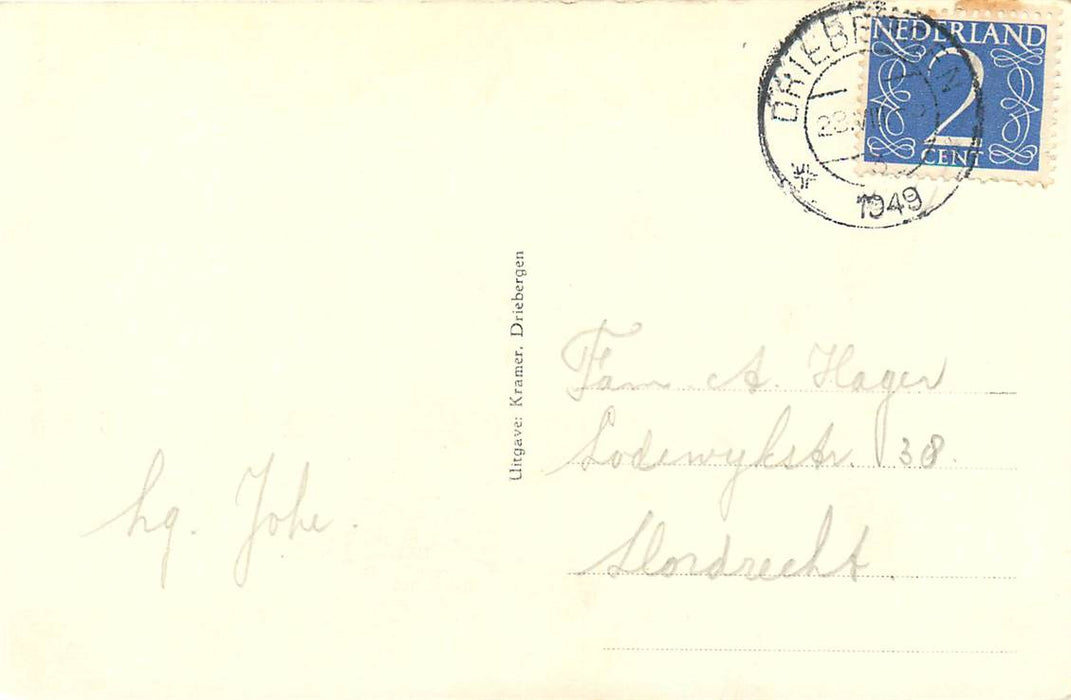 NEDERLAND
2
CENT
DRIEBERGEN
1949
Uitgave: Kramer, Driebergen
Fam. A. Hager
Lodewykstr. 38.
Dordrecht.
hg. Johe.